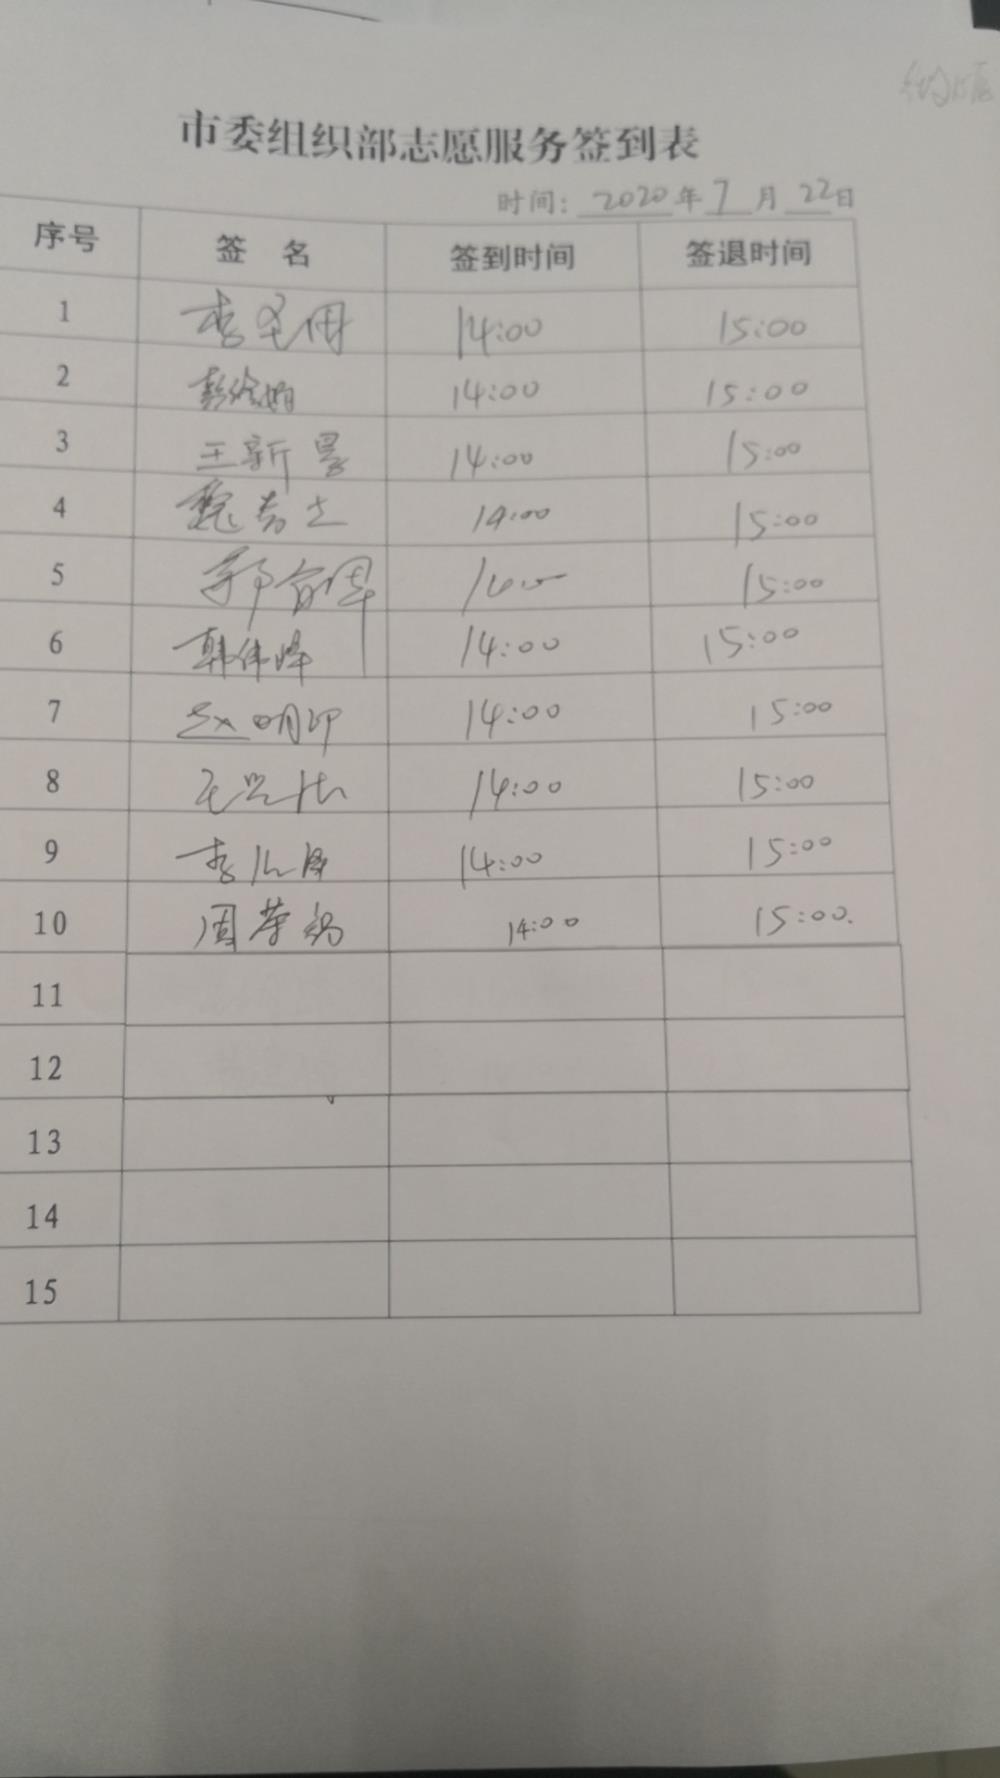 市委组织部志愿服务签到表
时间: 2020年7月22日
序号 签 名 签到时间 签退时间
1 李 14:00 15:00
2 14:00 15:00
3 王新 14:00 15:00
4 魏 14:00 15:00
5 郭 1400 15:00
6 韩伟峰 14:00 15:00
7 赵明 14:00 15:00
8 14:00 15:00
9 李 14:00 15:00
10 周荣 14:00 15:00.
11
12
13
14
15